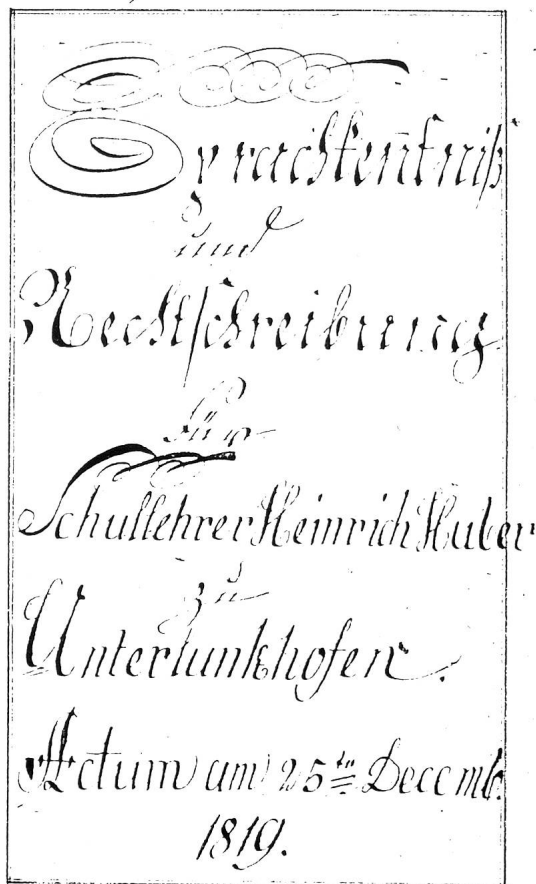 Sprachken̄tniß
und
Rechtschreibung
für
Schullehrer Heinrich Huber
zu
Unterlunkhofen.
Actum am 25ten Decemb.
1819.